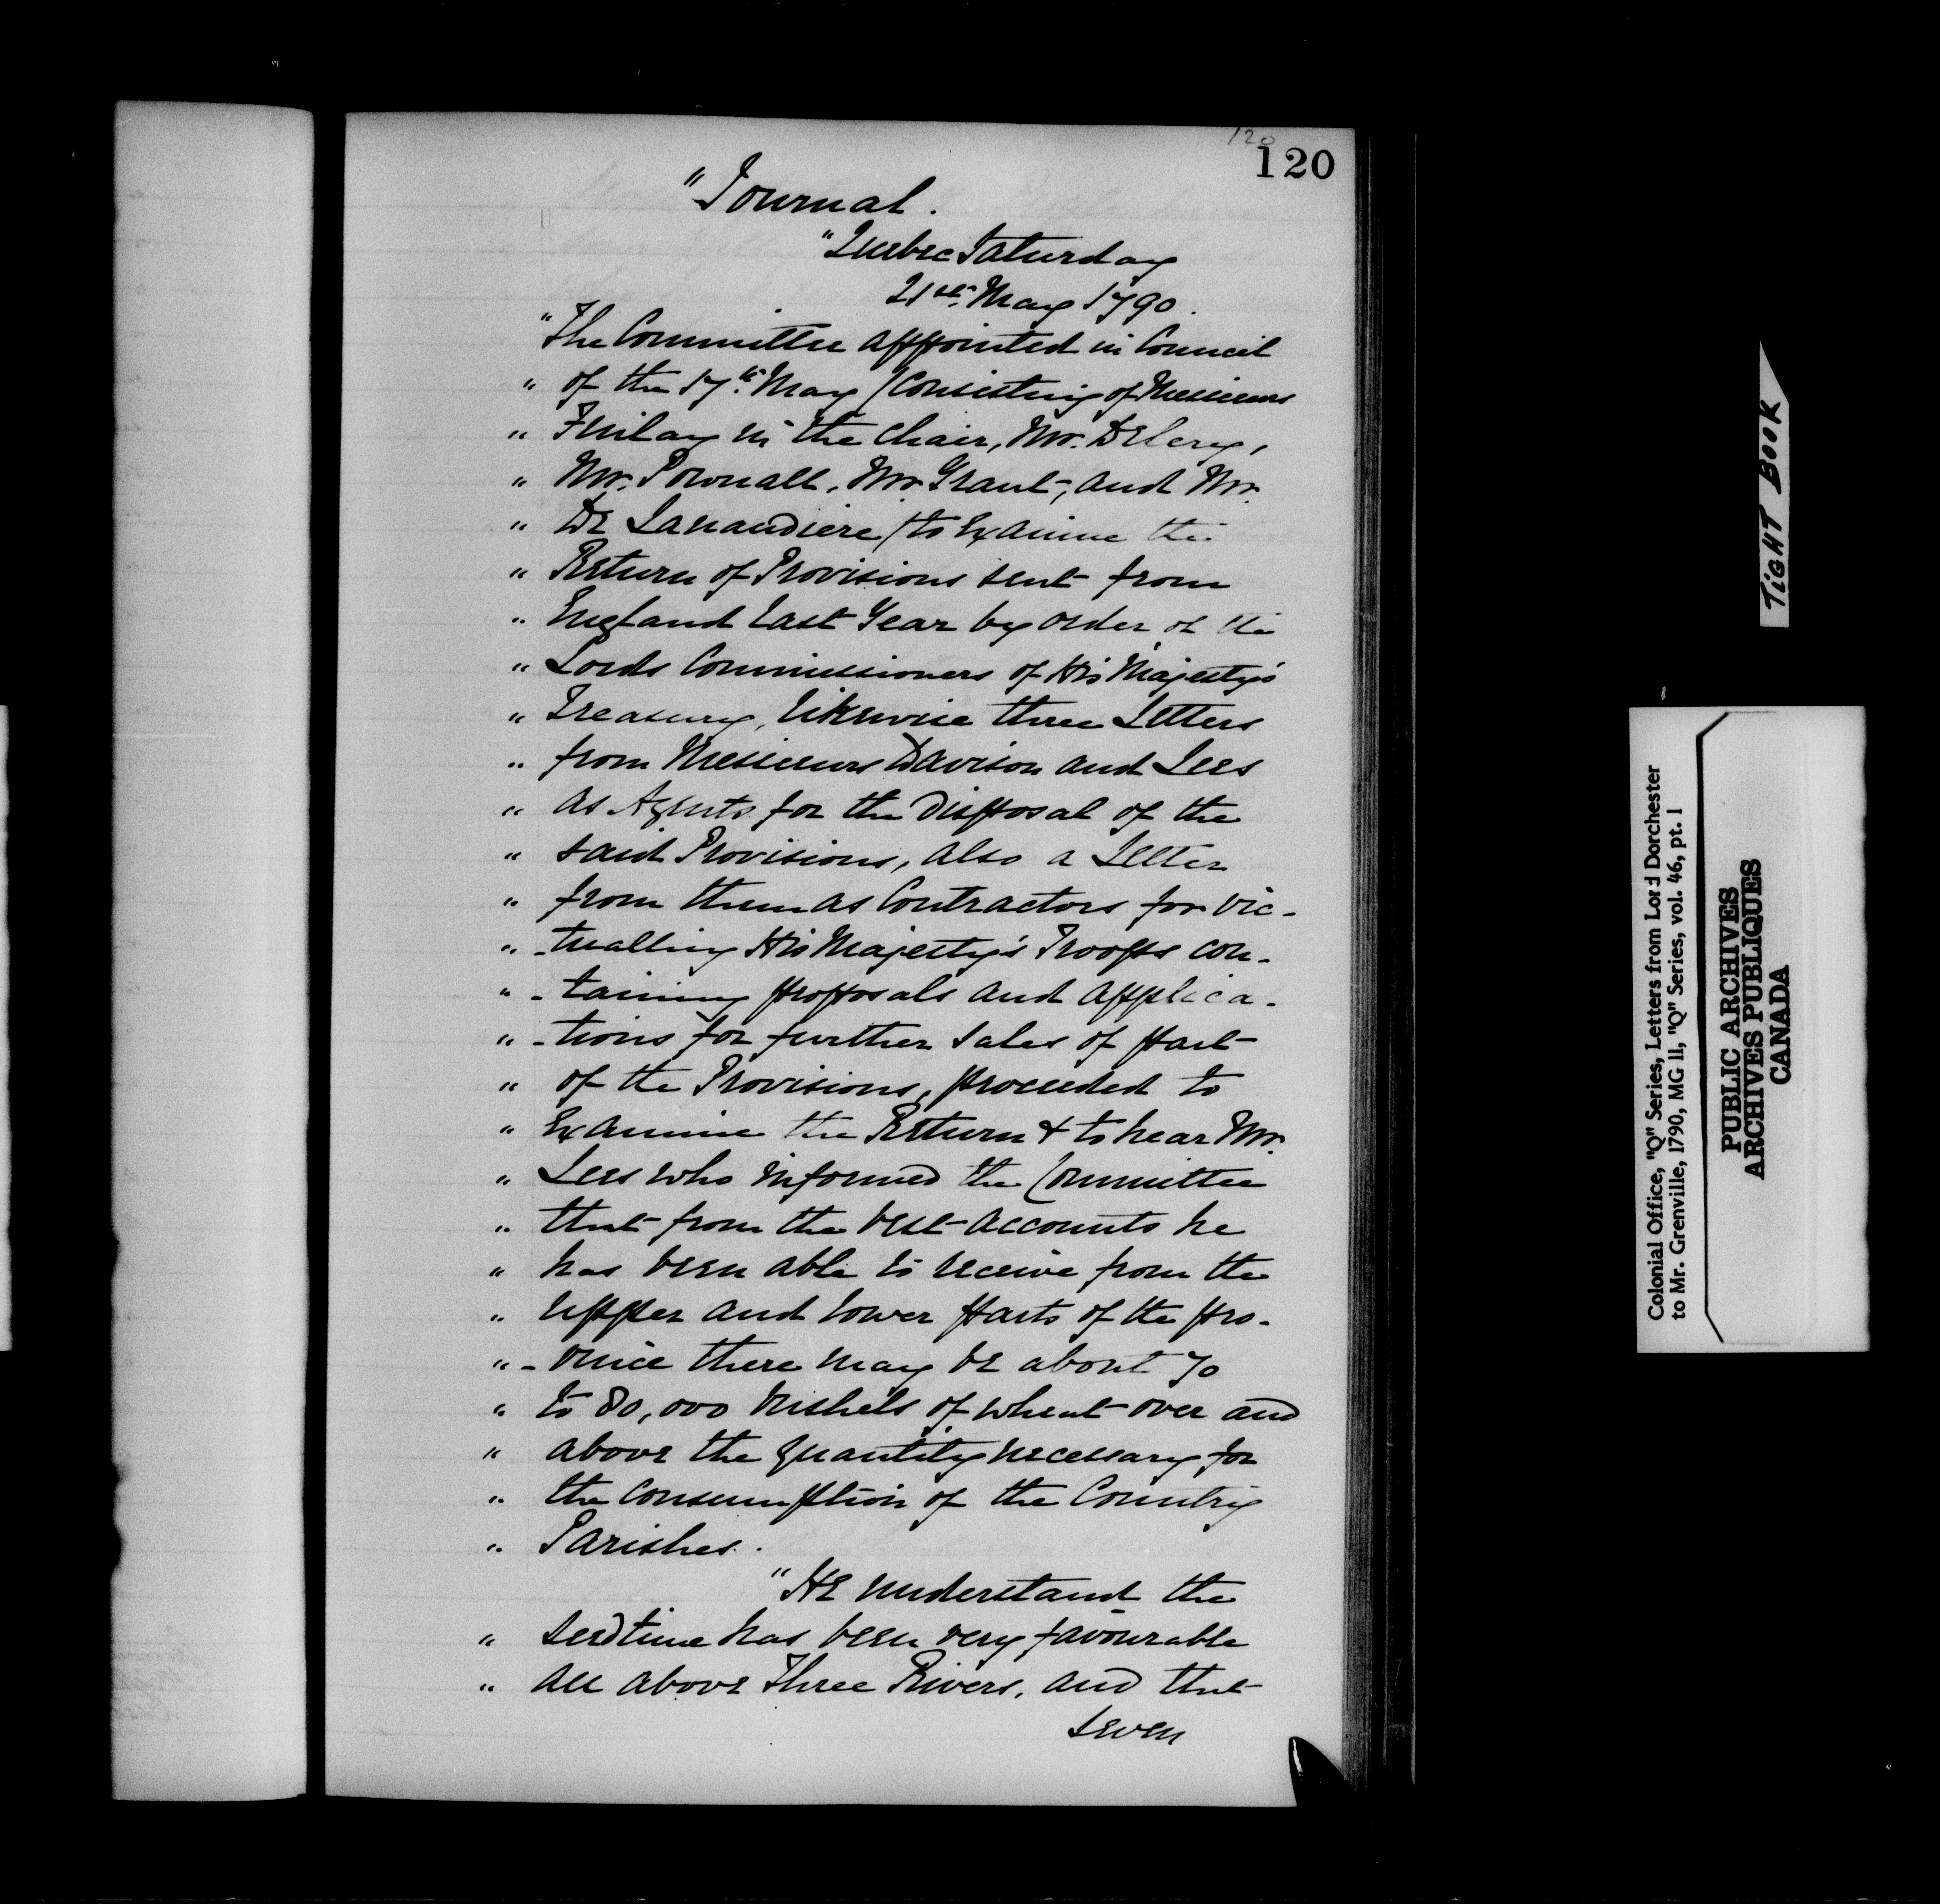 120
120
"Journal.
"Quebec Saturday
21st. May 1790.
"The Committee appointed in Council
" of the 17th. May (Consisting of Messieurs
" Finlay in the chair, Mr. Delery,
" Mr. Pownall, Mr. Grant, and Mr.
" De Lanaudiere) to Examine the
" Return of Provisions sent from
" England last Year by order of the
" Lords Commissioners of His Majesty's
" Treasury, likewise three Letters
" from Messieurs Davison and Lees
" as Agents for the Disposal of the
" said Provisions, also a Letter
" from them as Contractors for vic-
" -tualling His Majesty's Troops con-
" -taining proposals and applica-
" -tions for further sales of part
" of the Provisions, proceeded to
" Examine the Return & to hear Mr.
" Lees who informed the Committee
" that from the best accounts he
" has been able to receive from the
" upper and lower parts of the pro-
" -vince there may be about 70
" to 80,000 bushels of wheat over and
" above the quantity necessary for
" the consumption of the Country
" Parishes.
"He understand the
" seedtime has been very favourable
" all above Three Rivers, and that
seven
TIGHT BOOK
Colonial Office, "Q" Series, Letters from Lord Dorchester
to Mr. Grenville, 1790, MG 11, "Q" Series, vol. 46, pt. 1
PUBLIC ARCHIVES
ARCHIVES PUBLIQUES
CANADA